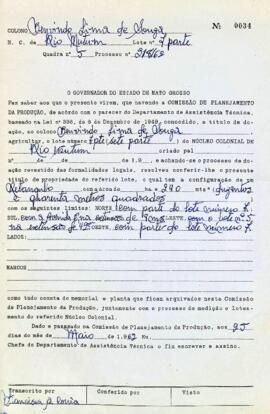 Nº 0034
COLONO Benvindo Lima de Souza
N. C. de Rio Mutum Lote nº 7 parte
Quadra nº 5 Processo nº
O GOVERNADOR DO ESTADO DE MATO GROSSO
Faz saber aos que o presente virem, que havendo a COMISSÃO DE PLANEJAMENTO
DA PRODUÇÃO, de acordo com o parecer do Departamento de Assistência Técnica,
baseado na Lei nº 336, de 6 de Dezembro de 1949, concedido, a título de doa-
ção, ao colono Benvindo Lima de Souza
agricultor, o lote número parte do NÚCLEO COLONIAL DE
Rio Mutum criado pel
nº de de de 1.9 e achando-se o processo de doação
revestido das formalidades legais, resolveu conferir-lhe o presente
título de propriedade do referido lote, o qual tem a configuração de um
Retangulo com a área de 240 mts² (duzentos
e quarenta metros quadrados
com os seguintes limites: NORTE com parte do lote número 7.
SUL com a Avenida na extensão de LESTE, com o lote nº 5
na extensão de OESTE, com parte do lote número 7.
LADOS:
MARCOS
como tudo consta do memorial e planta que ficam arquivados nesta Comissão
de Planejamento da Produção, juntamente com o processo de medição e lotea-
mento do referido Núcleo Colonial.
Dado e passado na Comissão de Planejamento da Produção, aos 25
dias do mês de Maio de 1.962 Eu,
Chefe do Departamento de Assistência Técnica o fiz escrever e assino.
Transcrito por Conferido por Visto